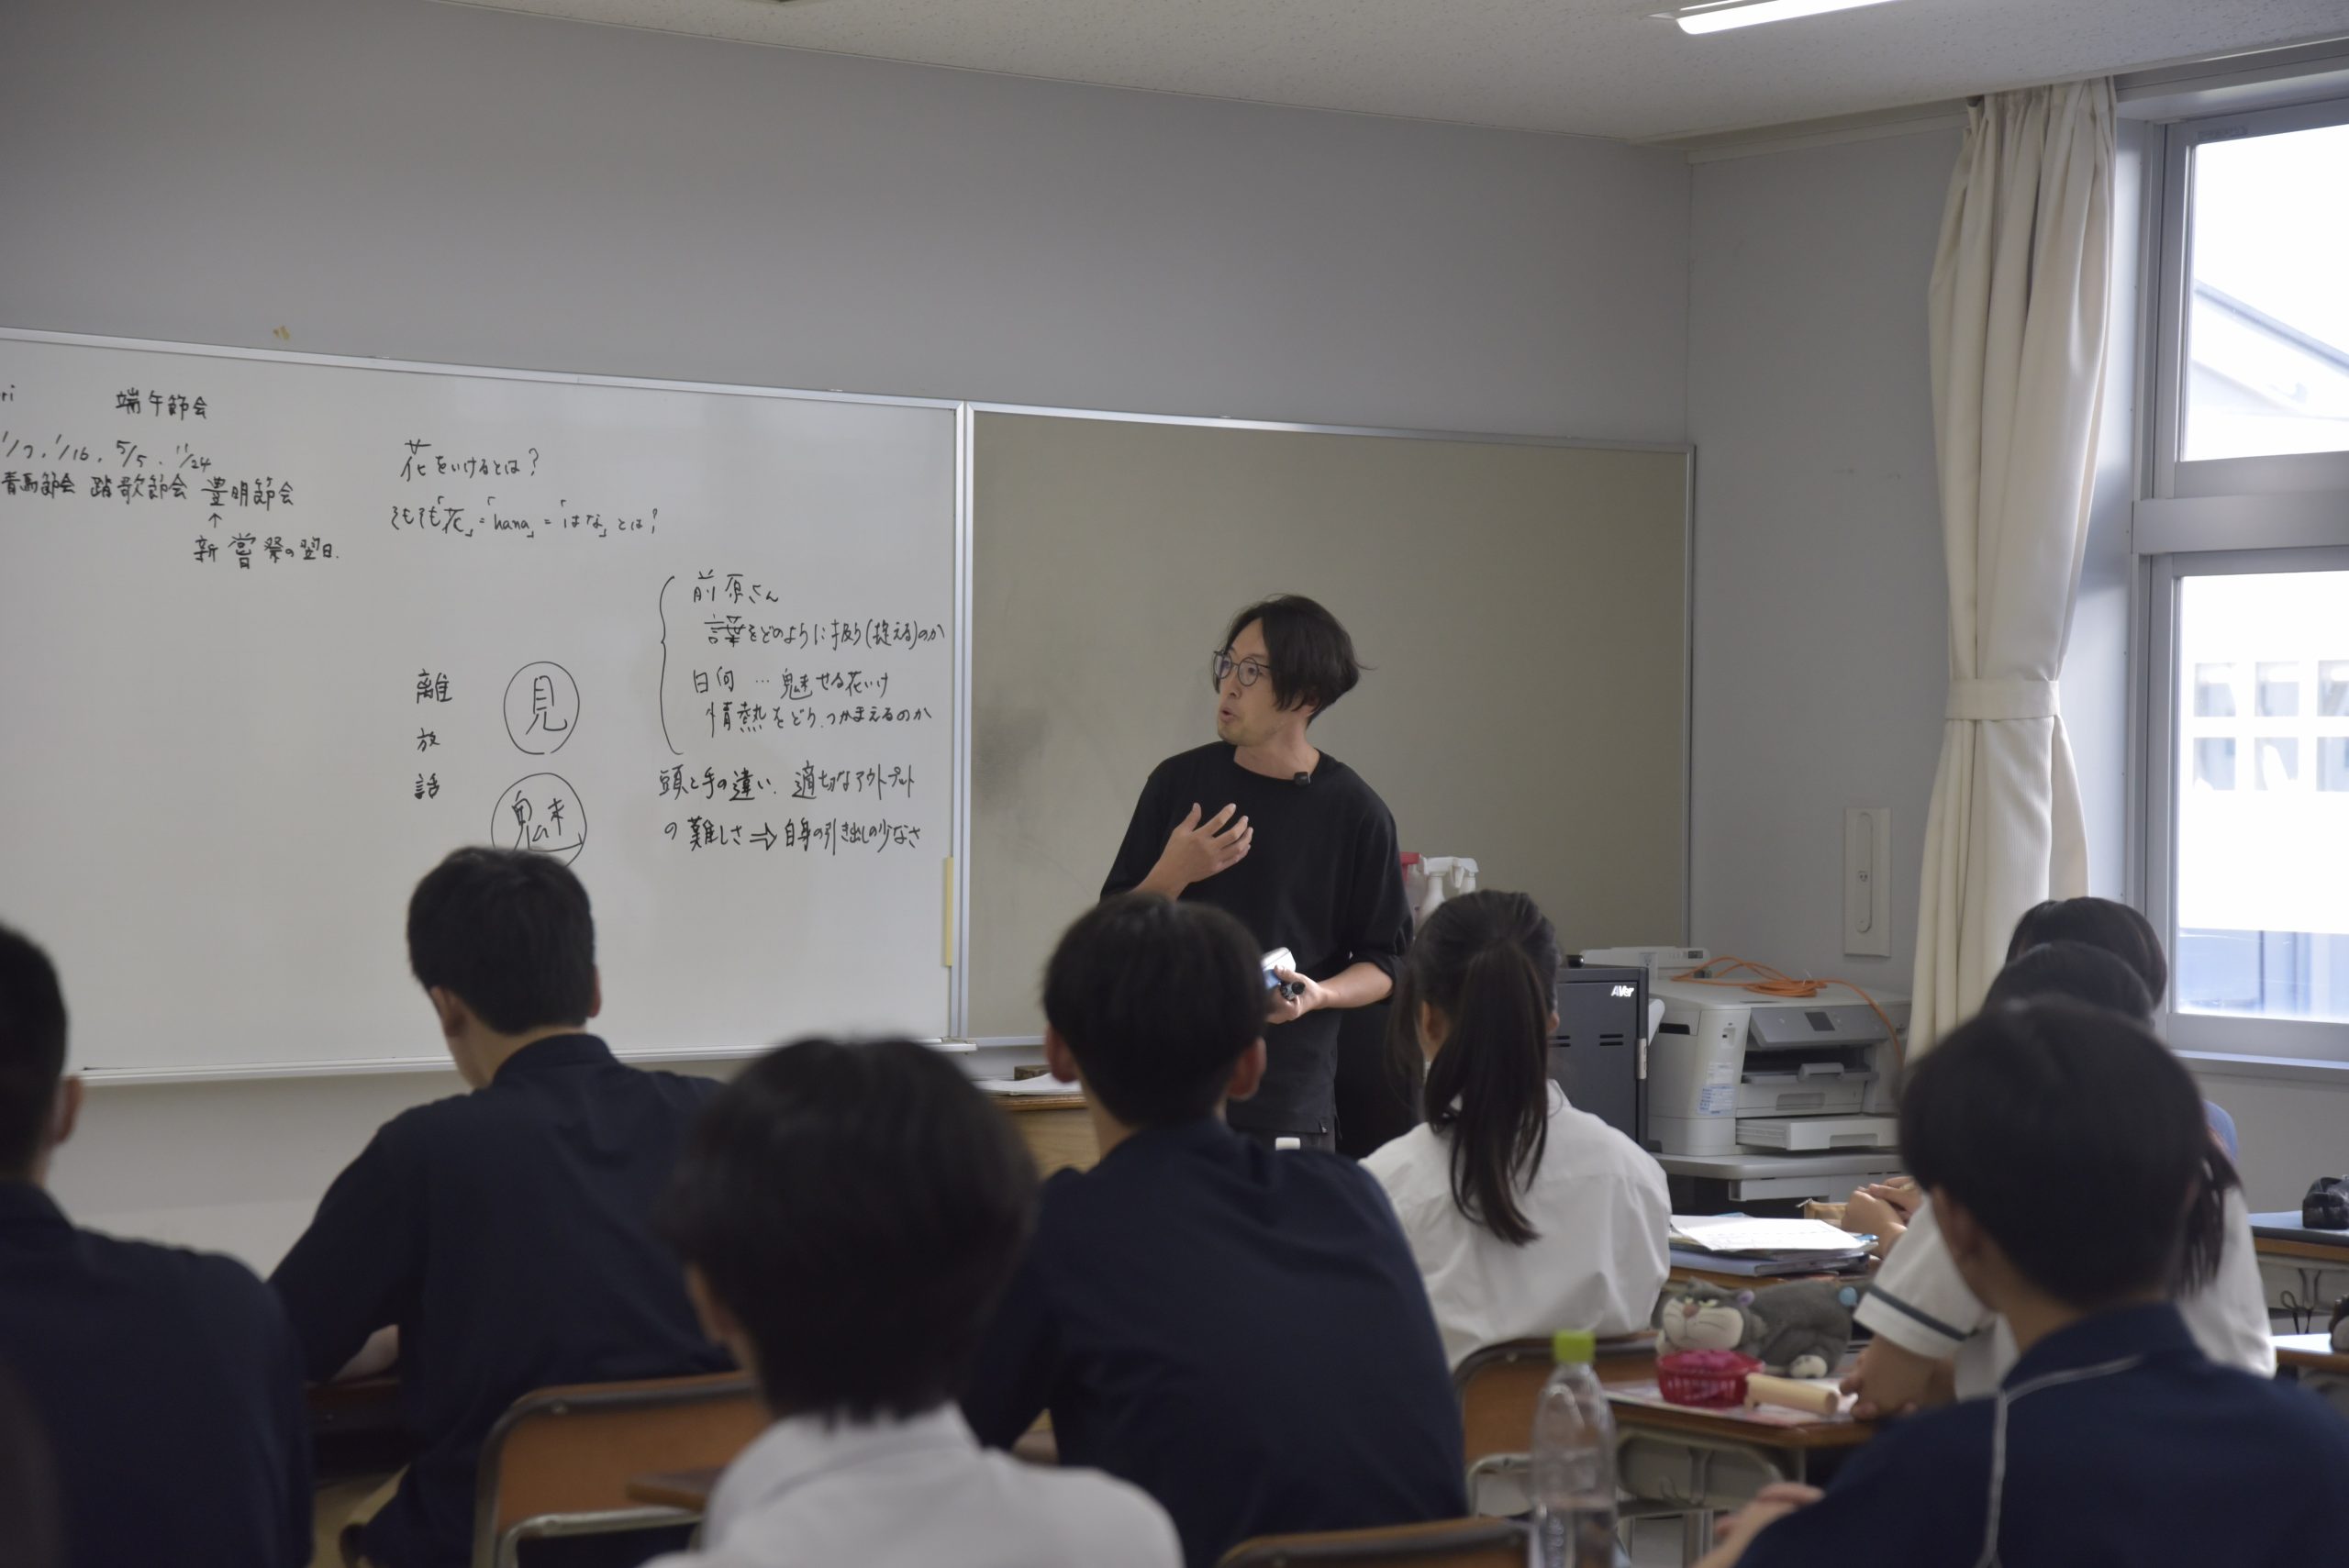 ri 端午節会
1/7、1/16、5/5、11/24
青馬節会 踏歌節会 豊明節会
↑
新嘗祭の翌日.
花をいけるとは?
そもそも「花」=「hana」=「はな」とは?
前原さん
言葉をどのように扱う(捉える)のか
日向 … 魅せる花いけ
情熱をどう、つかまえるのか
離
放
話
見
魅
頭と手の違い、適切なアウトプット
の難しさ⇒自身の引き出しの少なさ
AVer